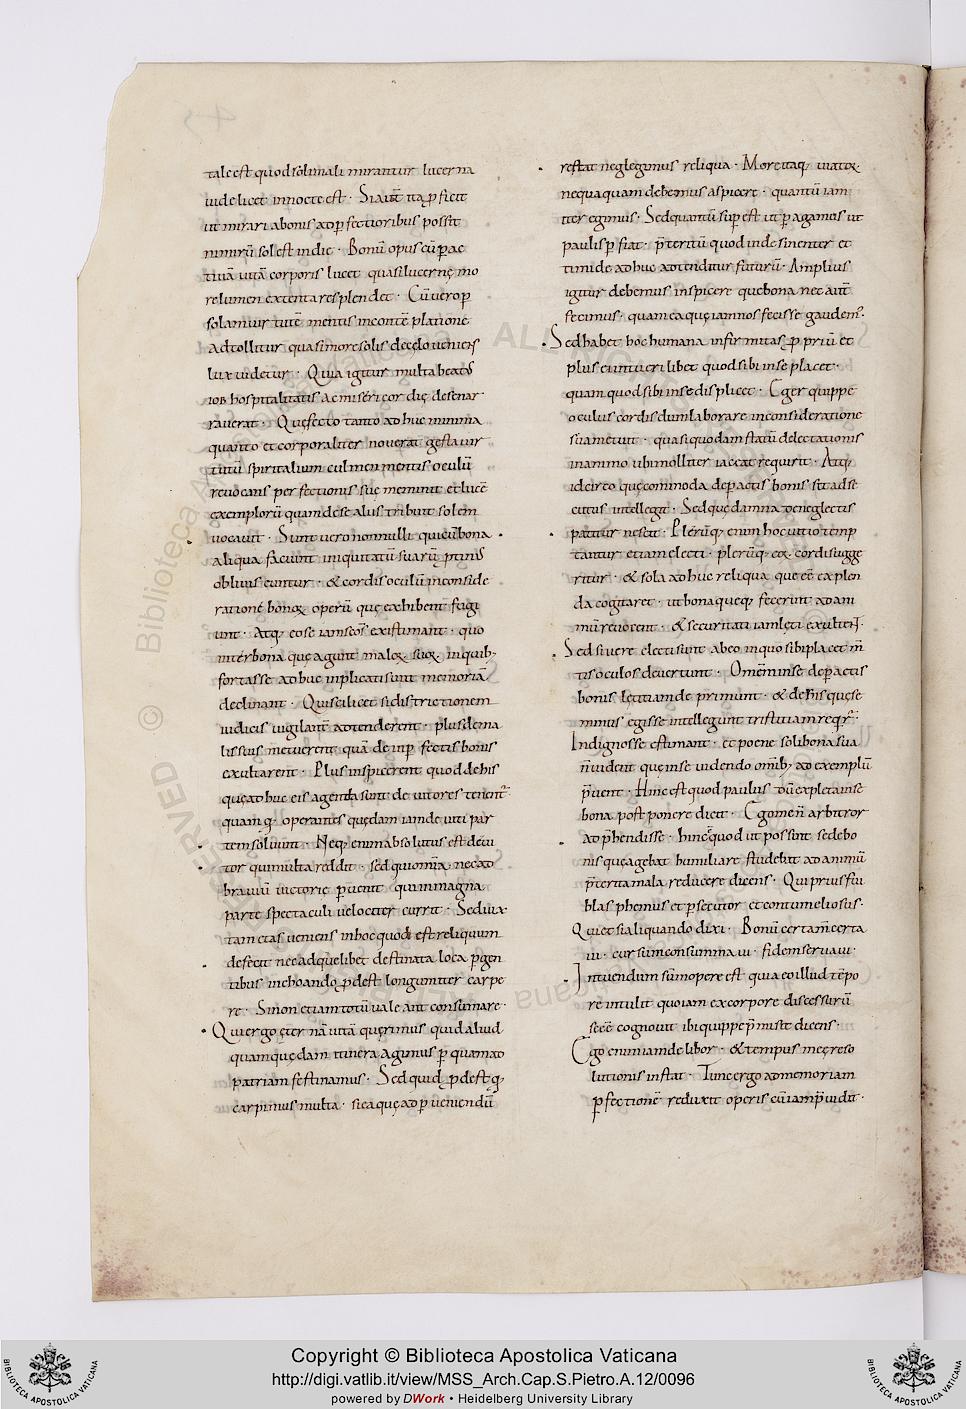 tale est quod solum ali mirantur lucerna
videlicet in nocte est · Si aut̄ ita ꝓficit
ut mirari a bonis ad ꝑfectioribus possit
nimirū sol est in die · Bonū opus cū ꝑ ac
tivā vitā corporis lucet quasi lucernę mo
re lumen extenta resplendet · Cū vero ꝑ
Adtollitur quasi more solis de cęlo venien̄s
lux videtur · Quia igitur multa beatus
iob hospitalitatis ac misericordię defenar
raverat · Que facto tanto adhuc minima
quanto et corporaliter noverat gesta vir
tutū spiritalium culmen mentis oculū
revocans perfectionis suę meminit et lucē
exemplorū quam de se aliis tribuit solem
vocavit · Sunt vero nonnulli qui cū bona
aliqua faciunt iniquitatū suarū
obliviscuntur · & cordis oculū inconside
ratione bonoꝝ operū quę exhibent figi
unt · Atq; eo se iam existimant · quo
inter bona quę agunt maloꝝ suoꝝ in quib;
fortasse adhuc inplicati sunt memoriā
declinant · Qui scilicet si districtionem
iudicis vigilant̄ adtenderent · plus de ma
lis suis metuerent quā de inꝑfectis bonis
exultarent · Plus inspicerent quod de his
quę adhuc eis agenda sunt debitores
quam q operantes quędam iam debiti par
tem solvunt · Neq; enim absolutus est debi
tor qui multa reddit · sed qui omnia · nec ad
bravium victorię ꝑvenit qui in magna
parte spectaculi velociter currit · Sed iux
ta metas veniens in hoc quod est reliquum
defecit nec ad quelibet destinata loca ꝑgen
tibus inchoando ꝓdest longum iter carpe
re · Si non etiam totū valeant consumare ·
Qui ergo ęter nā vitā quęrimus quid aliud
quam quędam itinera agimus ꝑ quam ad
patriam festinamus · Sed quid ꝓdest q
carpimus multa · si ea quę ad ꝑveniendū
restat neglegimus reliqua · More itaq; viatoꝝ
nequaquam debemus aspicere · quantū iam
iter egimus · Sed quantū superest ut ꝑagamus ut
paulisꝑ fiat · p̄teritū quod indesinenter et
timide adhuc adtenditur futurū · Amplius
igitur debemus inspicere que bona nec aut̄
fecimus · quam ea quę iam nos fecisse gaudem̄ ·
Sed habet hoc humana infirmitas ꝓpriū et
plus ei intueri libet quod sibi in se placet ·
quam quod sibi in se displicet · Ęger quippe
oculus cordis dum laborare in consideratione
sua metuit · quasi quodam stratū delectationis
in animo ubi molliter iaceat requirit · Atq;
idcirco quę commoda de ꝑactis bonis sit adse
cutus intellegit · Sed quę damna de neglectis
patitur nescit · Plerūq; enim hoc vitio temp
tantur etiam electi · plerūq; eoꝝ cordi sugge
ritur · & sola adhuc reliqua que eē explen
da cogitaret · ut bona queq; fecerint ad ani
mū revocent · & securitati iam lęti exultent
Sed si vere electi sunt ab eo in quo sibi placet m̄
tis oculos devertunt · Omem̄ in se de ꝑactis
bonis lętitiam deprimunt · & de his quę se
minus egisse intellegunt tristitiam
Indignos se estimant · et poene soli bona sua
n̄ vident quę in se videndo om̄ib; ad exemplū
p̄bent · Hinc est quod paulus dū expleta in se
bona postponeret dicit · Ego me n̄ arbitror
adp̄hendisse · hinc quod ut possint se de bo
nis quę agebat humiliare studebat ad animū
p̄terita mala reducere dicens · Qui prius fui
blasphemus et ꝑsecutor et contumeliosus ·
Qui et si aliquando dixi · Bonū certam̄ certa
vi · cursum consummavi · fidem servavi ·
Intuendum sūmopere est quia eo illud tēpo
re intulit quo iam ex corpore discessurū
se eē cognovit ibi quippe p̄misit dicens ·
Ego enim iam delibor · & tempus meę reso
lutionis instat · Tunc ergo ad memoriam
ꝑfectionē reduxit operis cū iam p̄vidit ·
Copyright © Biblioteca Apostolica Vaticana
http://digi.vatlib.it/view/MSS_Arch.Cap.S.Pietro.A.12/0096
powered by DWork • Heidelberg University Library